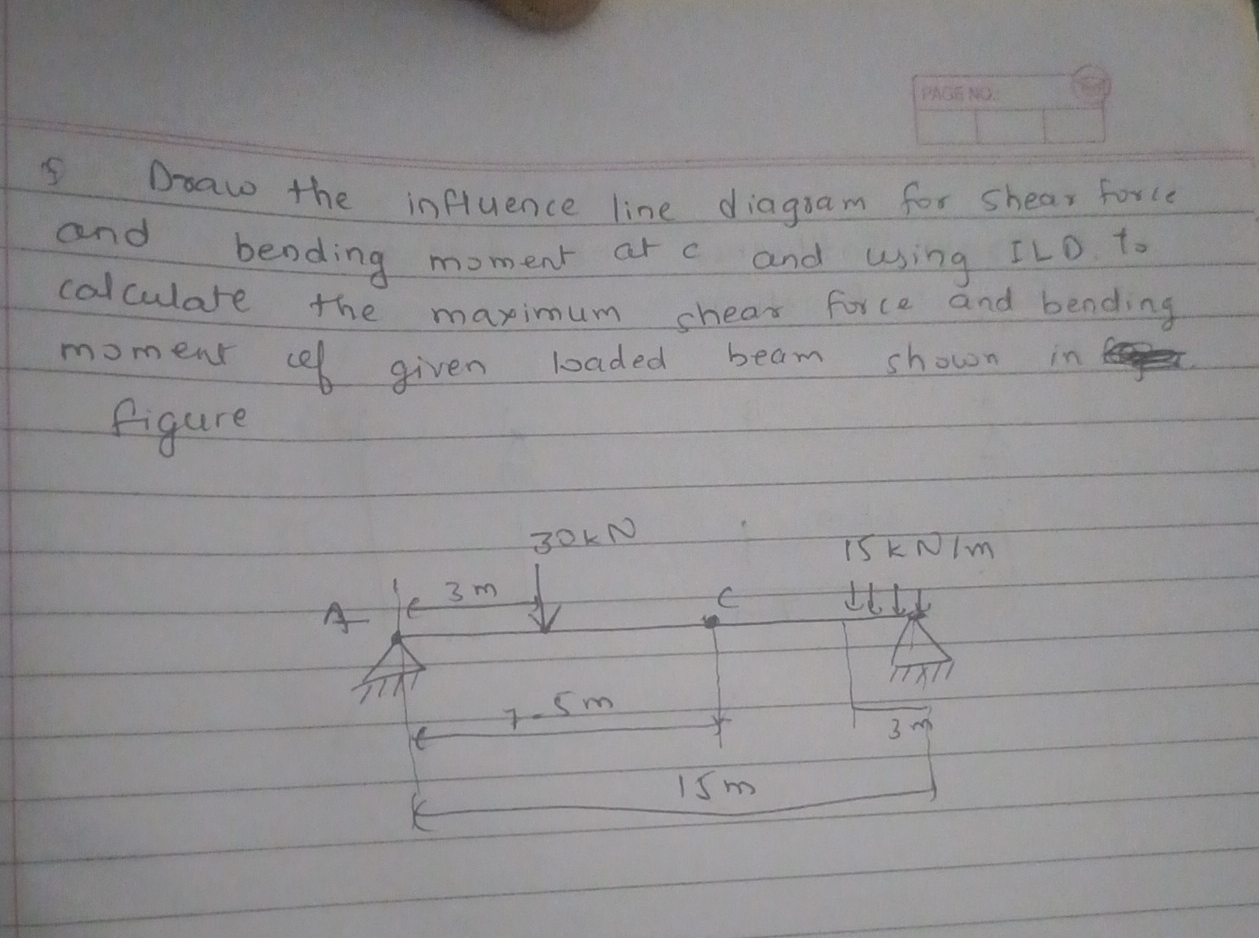 PAGE NO.
5 Draw the influence line diagram for shear force
and bending moment at c and using ILD to
calculate the maximum shear force and bending
moment of given loaded beam shown in
figure
30kN
15kN/m
A 3m C
7.5m
3m
15m